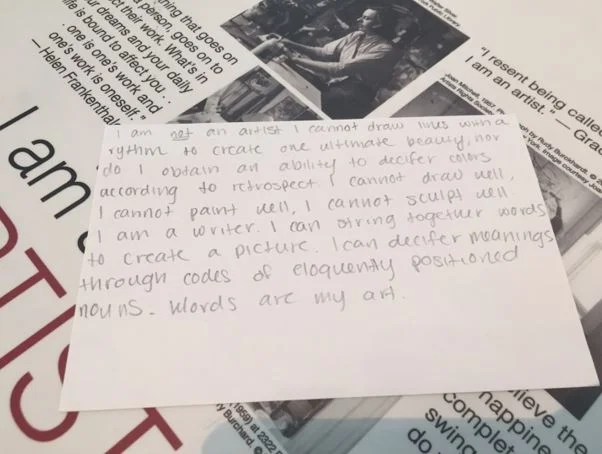 thing that goes on
a person, goes on to
ct their work. What's in
ur dreams and your daily
life is bound to affect you. . .
. one is one's work and
one's work is oneself."
— Helen Frankenthal
"I resent being called
I am an artist." — Grac
Joan Mitchell, 1957,
Artists Rights Society
ph by Rudy Burckhardt. ©
York. Image courtesy Joa
I am a
RTIST
I am not an artist I cannot draw lines with a
rythm to create one ultimate beauty, nor
do I obtain an ability to decifer colors
according to retrospect. I cannot draw well,
I cannot paint well, I cannot sculpt well.
I am a writer. I can string together words
to create a picture. I can decifer meanings
through codes of eloquently positioned
nouns. Words are my art.
1959) at 2322
Burchard. ©
lieve the
happine
complet
swing
do